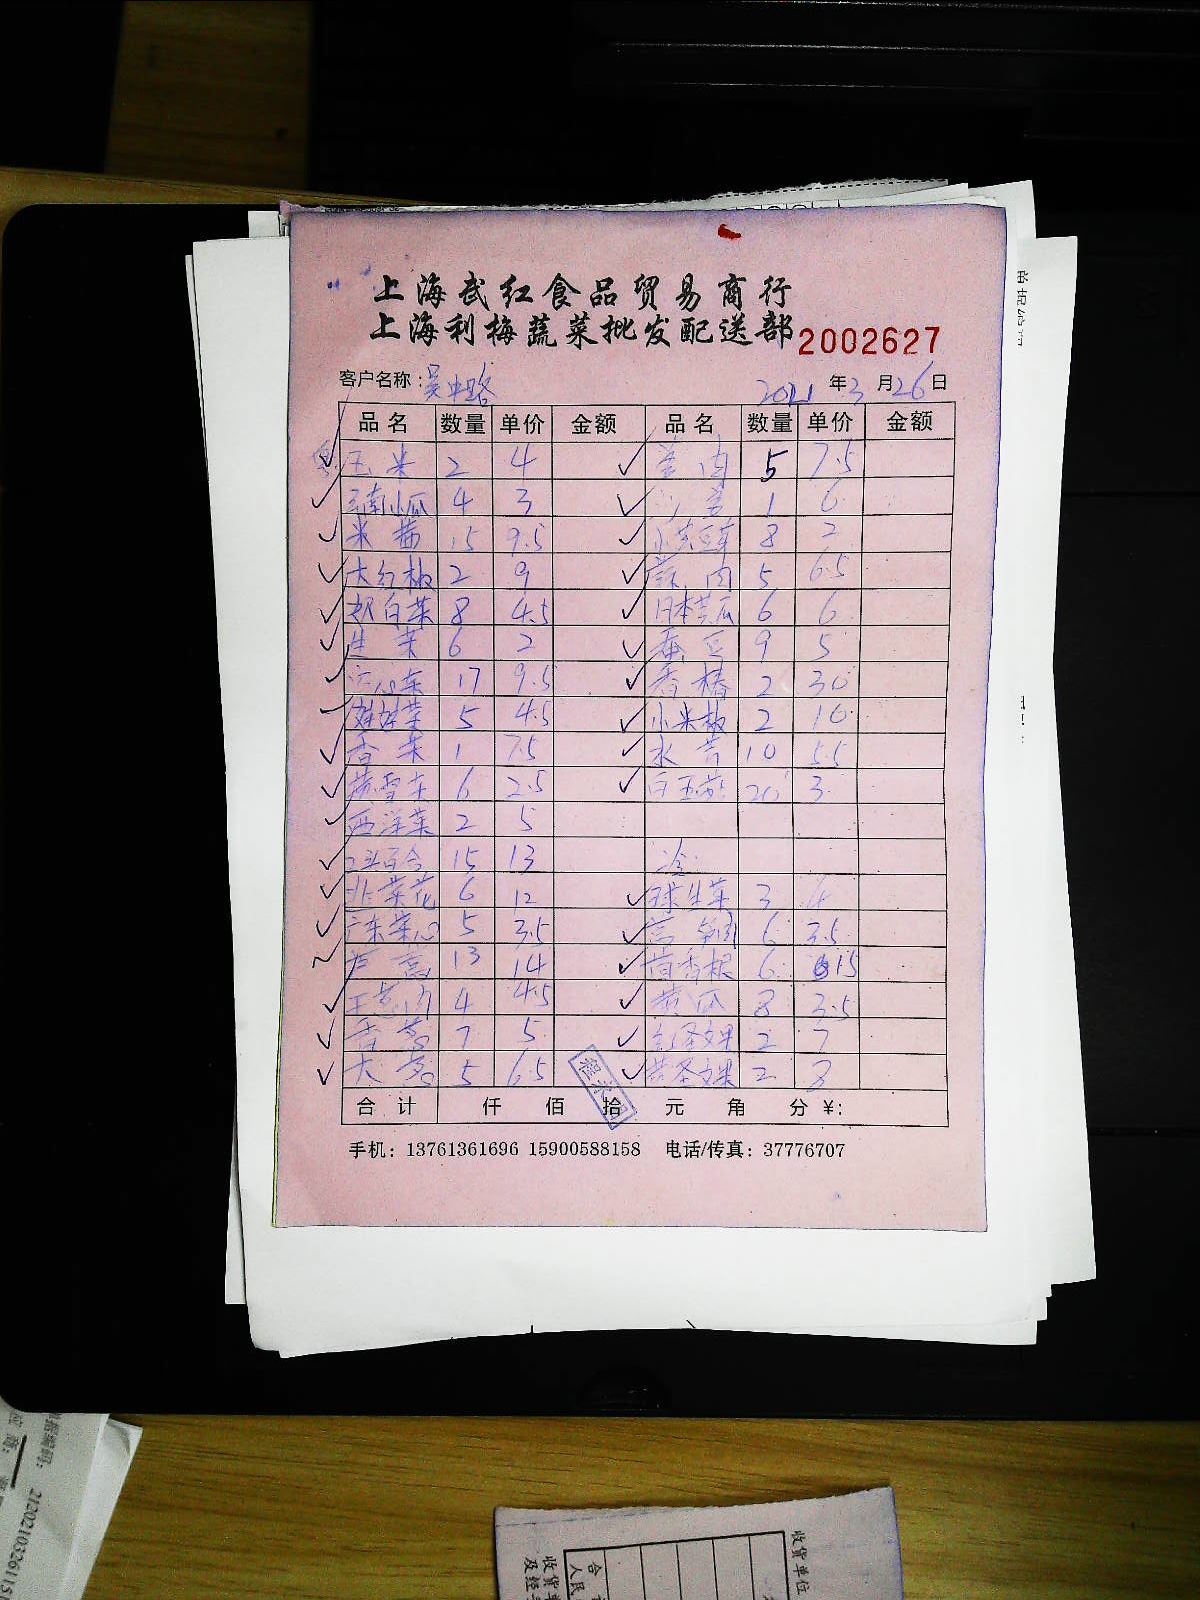 上海武红食品贸易商行
上海利梅蔬菜批发配送部 2002627
客户名称: 吴中路 2021 年 3 月 26 日
品名 数量 单价 金额 品名 数量 单价 金额
玉米 2 4 5 7.5
云南小瓜 4 3 1 6
米苋 15 9.5 小黄豆芽 8 2
大红椒 2 9 蒜肉 5 6.5
奶白菜 8 4.5 日本黄瓜 6 6
生菜 6 2 蚕豆 9 5
17 9.5 香椿 2 30
娃娃菜 5 4.5 小米椒 2 10
香菜 1 7.5 水 10 5.5
6 2.5 白玉菇 20 3
西洋菜 2 5
百合 15 13 冷
韭菜花 6 12 球生菜 3 4
广东菜心 5 3.5 莴笋 6 3.5
芦蒿 13 14 茴香根 6 15
4 4.5 黄瓜 8 3.5
香葱 7 5 红圣女果 2 7
大葱 5 6.5 黄圣女果 2 8
合计 仟 佰 拾 元 角 分 ¥:
手机: 13761361696 15900588158 电话/传真: 37776707
收货单位
合
人民
收货单
及经手